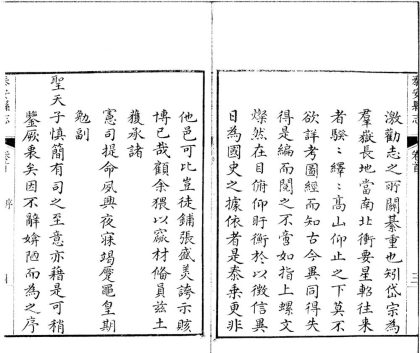 泰安縣志
卷首
三
激勸志之所關綦重也矧岱宗為
羣嶽長地當南北衝要星軺往來
者騤〻繹〻高山仰止之下莫不
欲詳考圖經而知古今異同得失
得是編而閱之不啻如指上螺文
燦然在目俯仰盱衡於以徵信異
日為國史之據依者是泰乘更非
他邑可比豈徒鋪張盛美誇示賅
博已哉顧余猥以窳材備員茲土
獲承諸
憲司提命夙興夜寐竭蹷黽皇期
勉副
聖天子慎簡有司之至意亦藉是可稍
鑒厥衷矣因不辭媕陋而為之序
泰安縣志
卷首
序